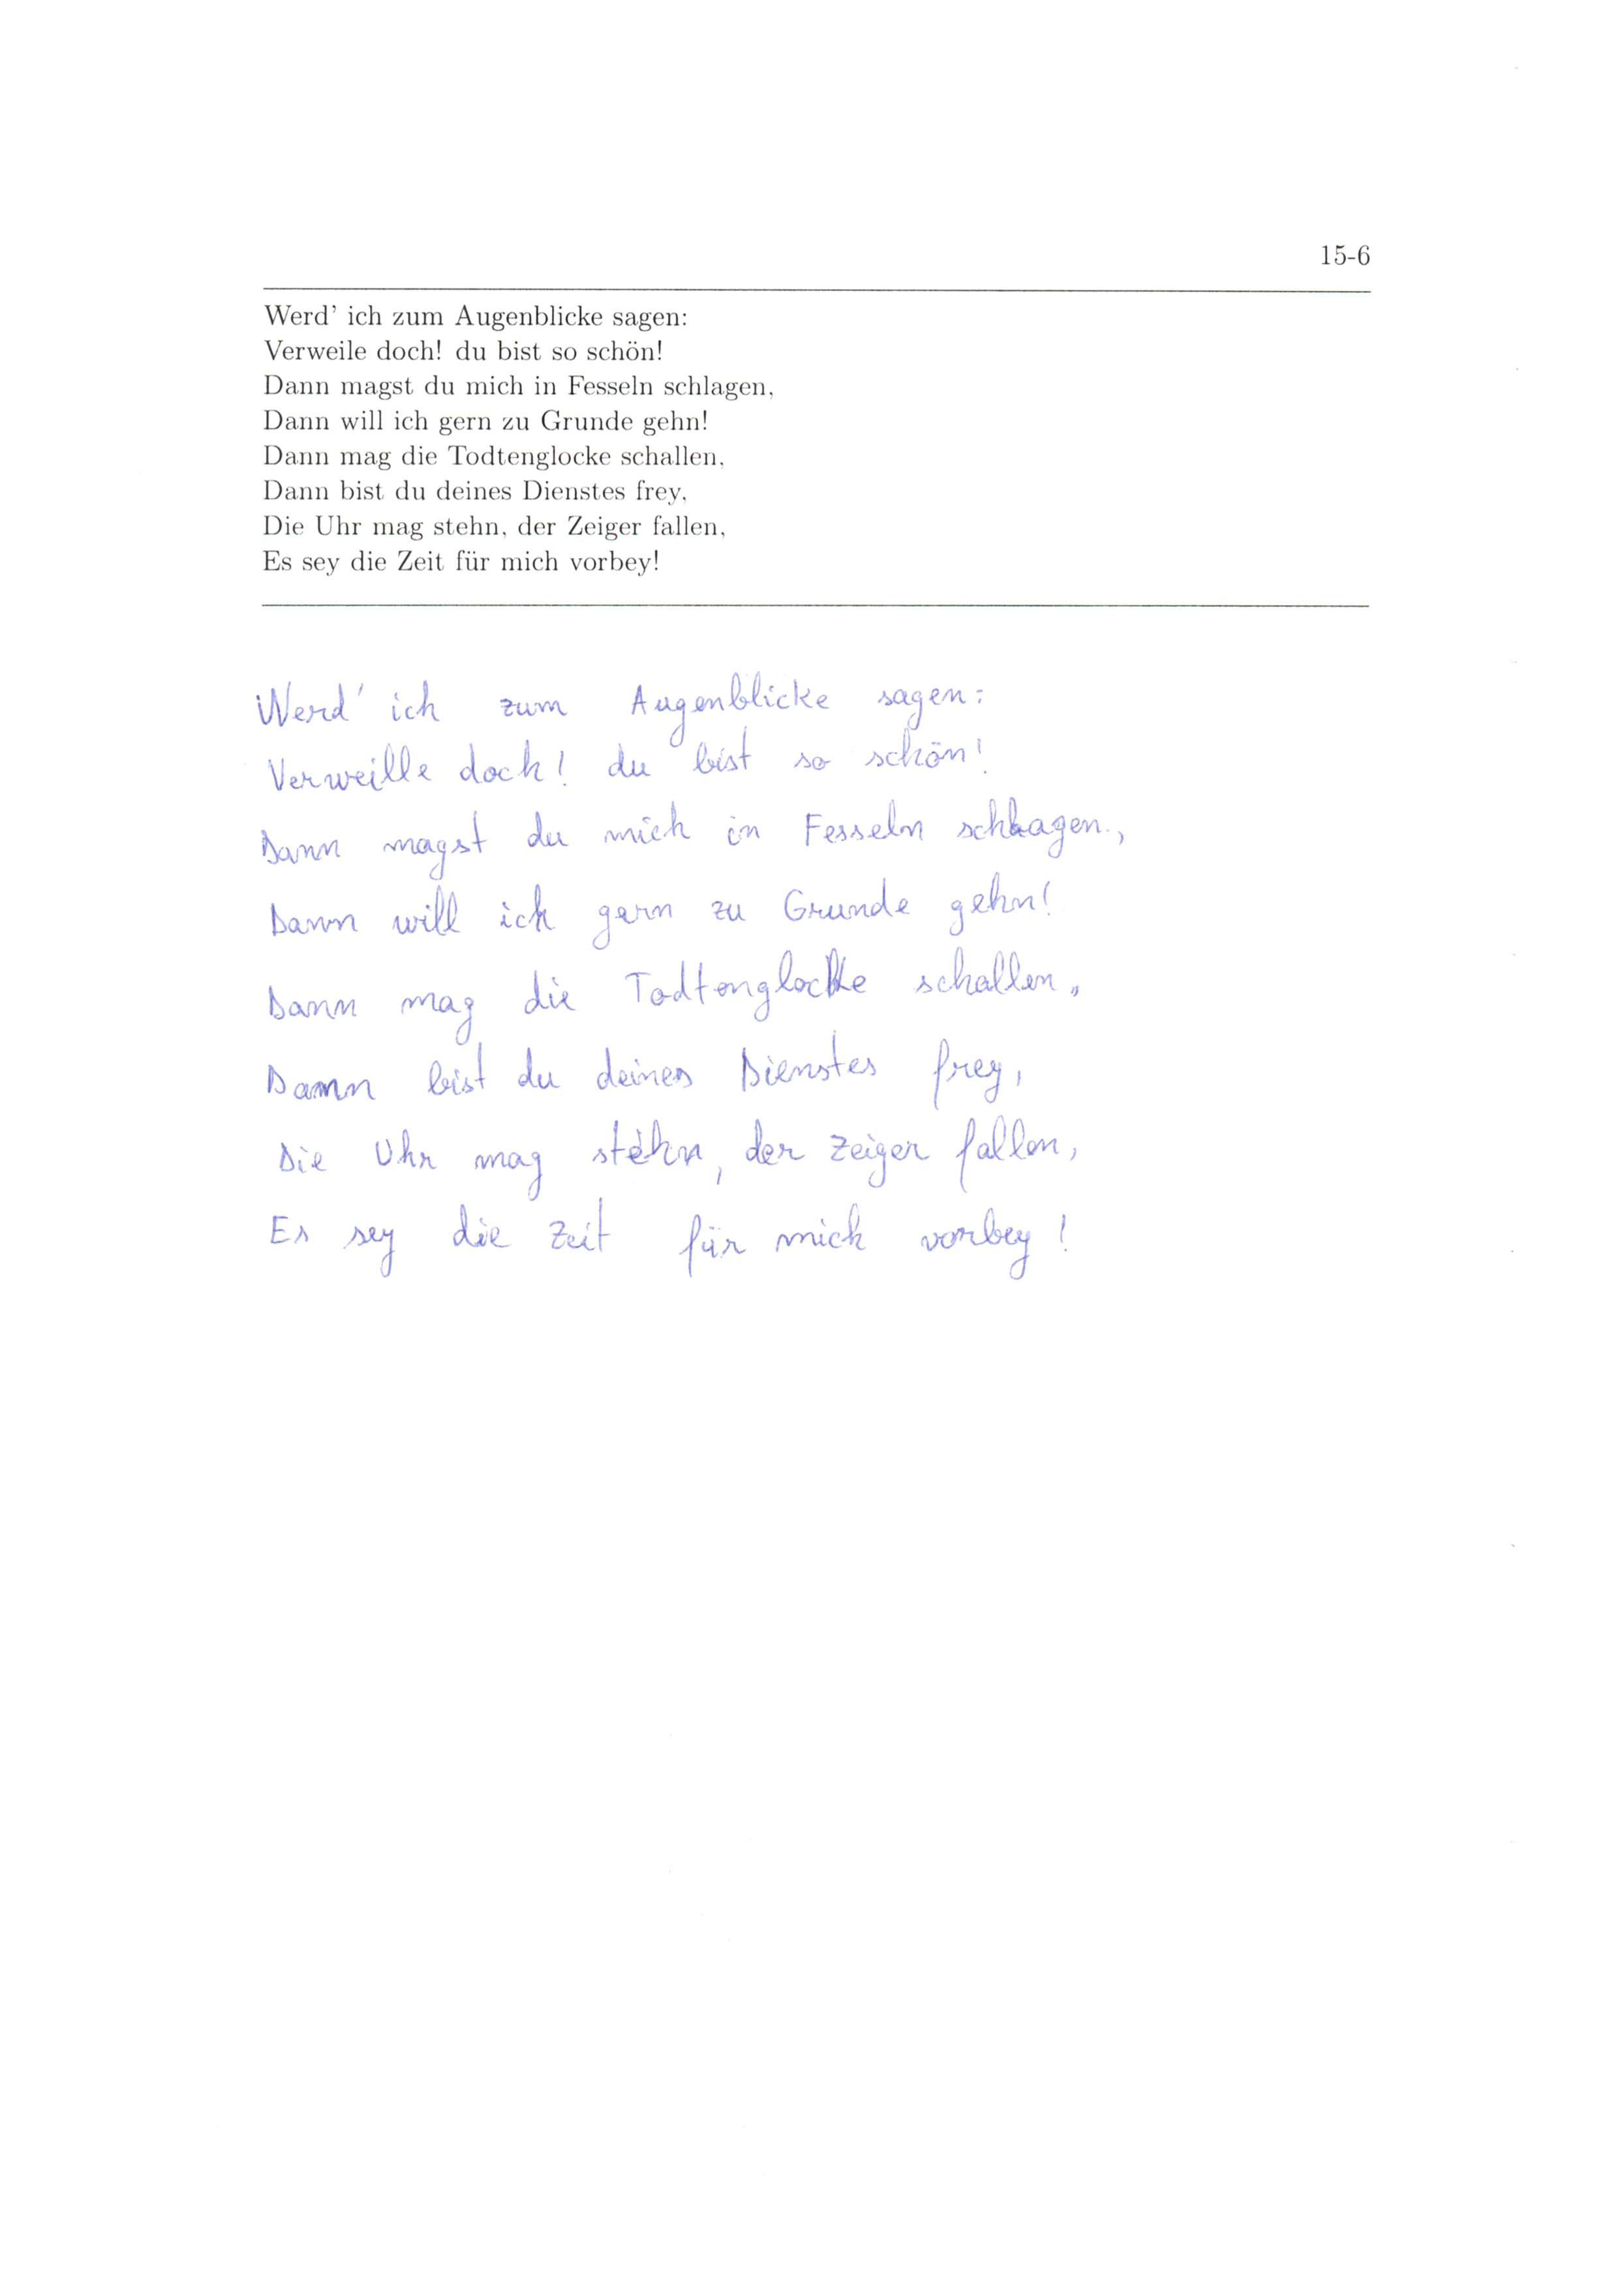 15-6
Werd' ich zum Augenblicke sagen:
Verweile doch! du bist so schön!
Dann magst du mich in Fesseln schlagen,
Dann will ich gern zu Grunde gehn!
Dann mag die Todtenglocke schallen,
Dann bist du deines Dienstes frey,
Die Uhr mag stehn, der Zeiger fallen,
Es sey die Zeit für mich vorbey!
Werd' ich zum Augenblicke sagen:
Verweille doch! du bist so schön!
Dann magst du mich in Fesseln schlagen.,
Dann will ich gern zu Grunde gehn!
Dann mag die Todtenglocke schallen,
Dann bist du deines Dienstes frey,
Die Uhr mag stehn, der Zeiger fallen,
Es sey die Zeit für mich vorbey!